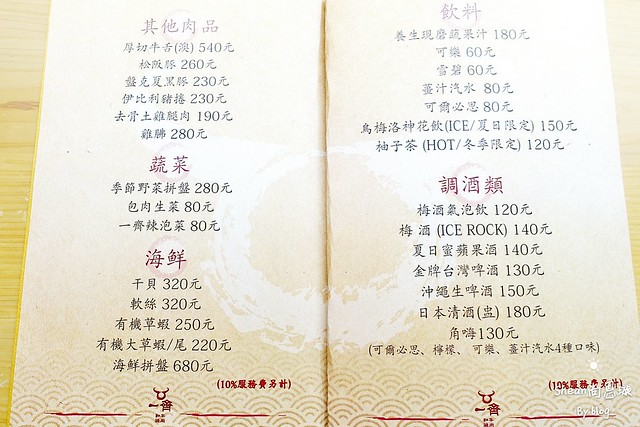 其他肉品
厚切牛舌(澳) 540元
松阪豚 260元
盤克夏黑豚 230元
伊比利豬捲 230元
去骨土雞腿肉 190元
雞腓 280元
蔬菜
季節野菜拼盤 280元
包肉生菜 80元
一齊辣泡菜 80元
海鮮
干貝 320元
軟絲 320元
有機草蝦 250元
有機大草蝦/尾 220元
海鮮拼盤 680元
(10%服務費另計)
一齊
飲料
養生現磨蔬果汁 180元
可樂 60元
雪碧 60元
薑汁汽水 80元
可爾必思 80元
烏梅洛神花飲(ICE/夏日限定) 150元
柚子茶 (HOT/冬季限定) 120元
調酒類
梅酒氣泡飲 120元
梅 酒 (ICE ROCK) 140元
夏日蜜蘋果酒 140元
金牌台灣啤酒 130元
沖繩生啤酒 150元
日本清酒(盅) 180元
角嗨130元
(可爾必思、檸檬、 可樂、薑汁汽水4種口味)
(10%服務費另計)
一齊
By blog